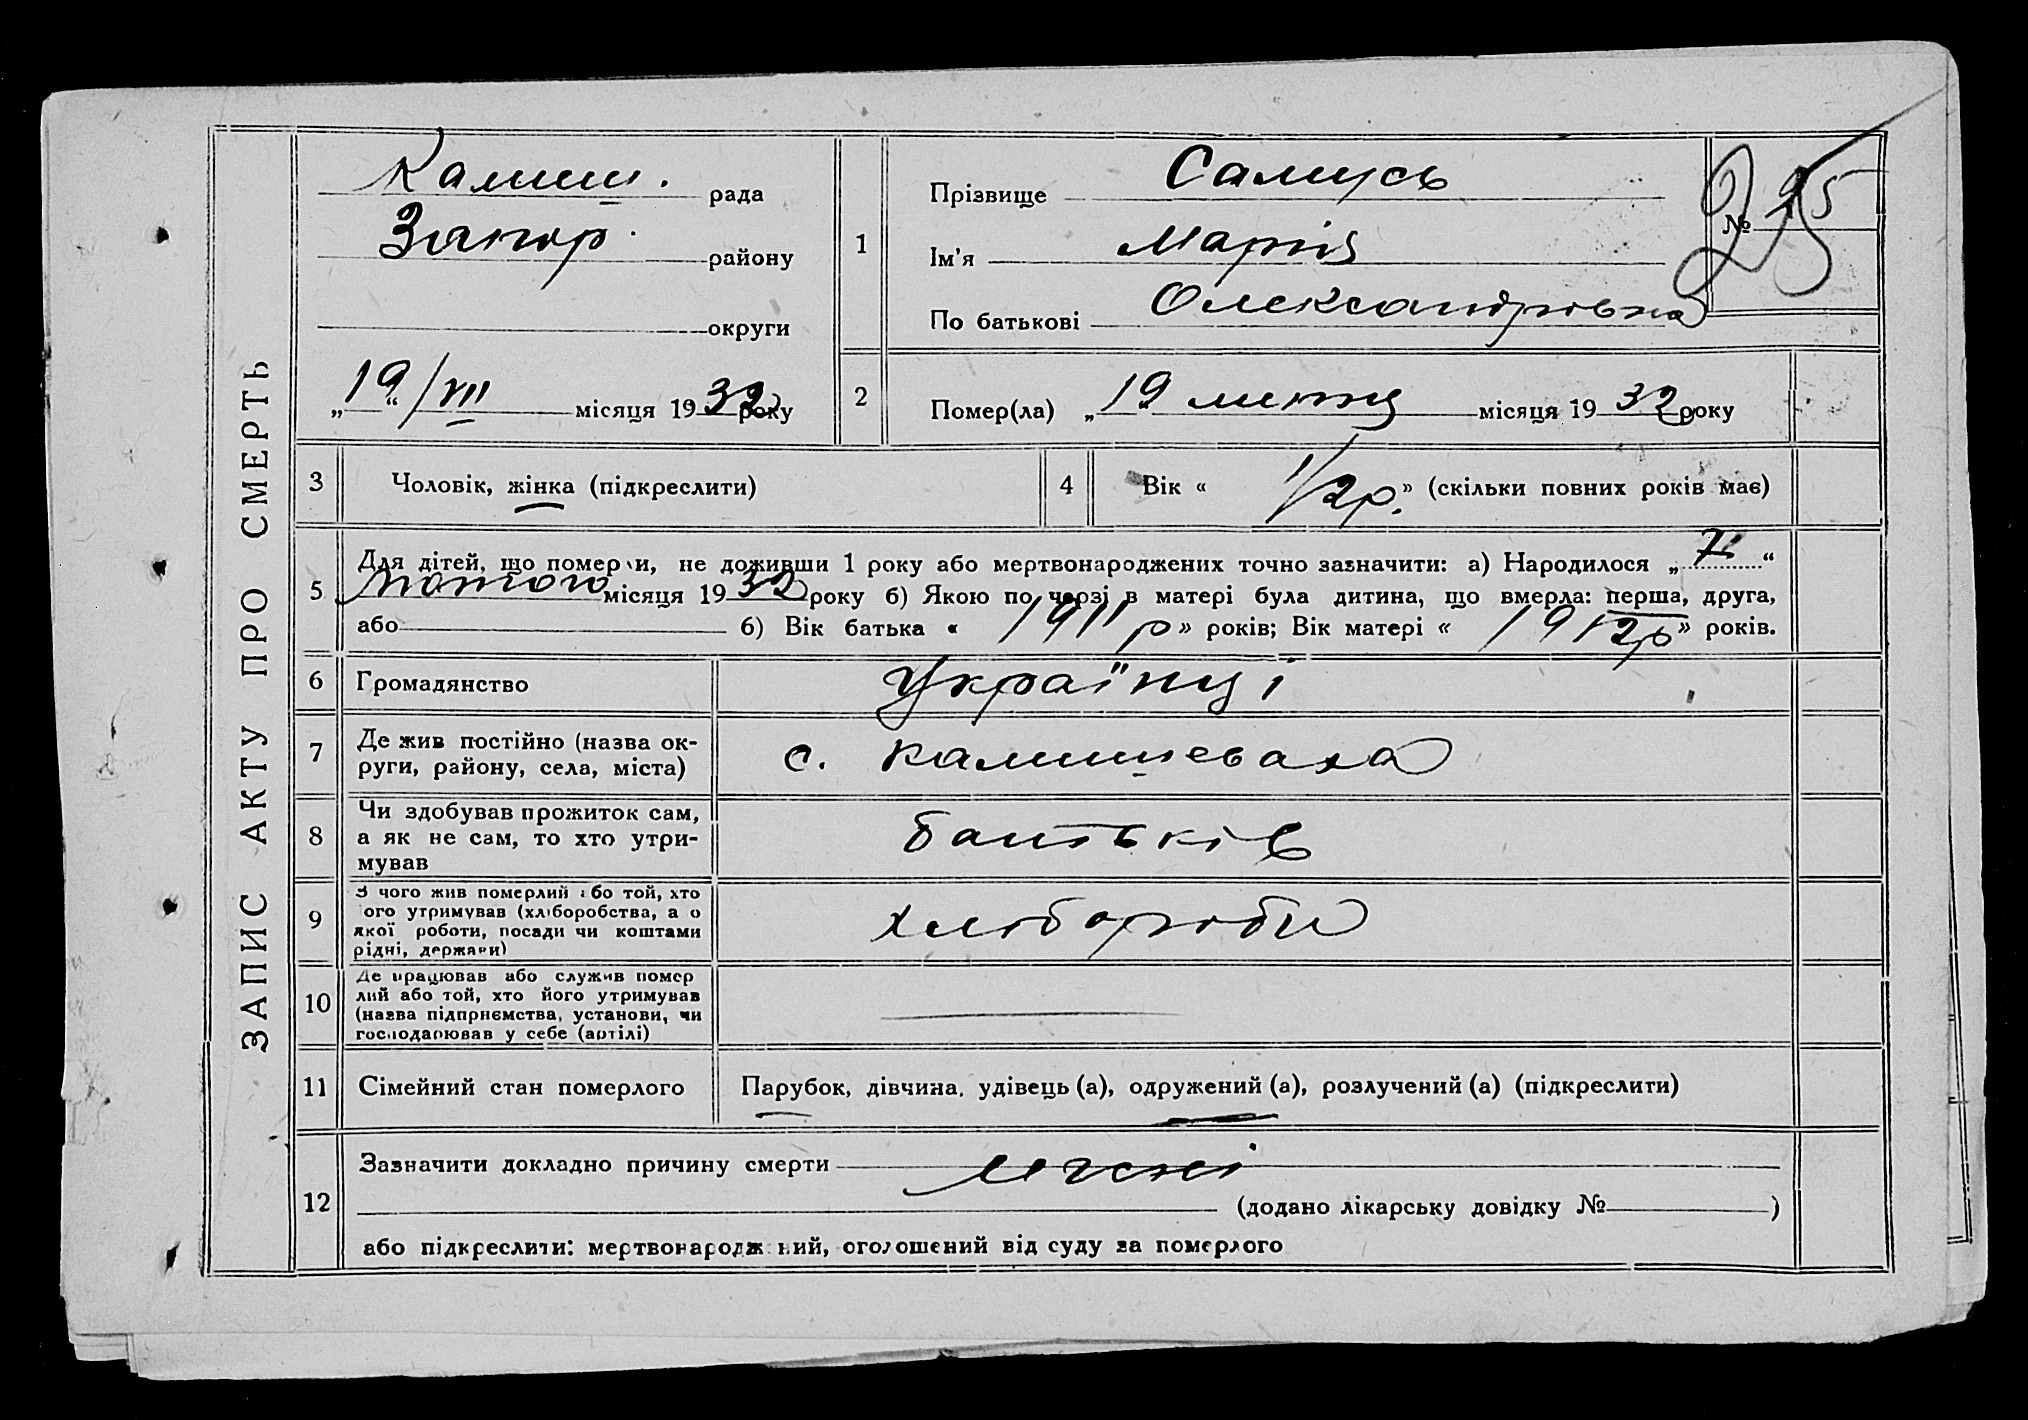 ЗАПИС АКТУ ПРО СМЕРТЬ
Камиш. рада
Запор. району
округи
„19“ /VII місяця 1932 року
1
Прізвище Самусь
Ім'я Марія
По батькові Олександрівна
№ 295
25
2
Помер(ла) „19“ липня місяця 1932 року
3
Чоловік, жінка (підкреслити)
4
Вік « 1/2 р. » (скільки повних років має)
5
Для дітей, що померли, не доживши 1 року або мертвонароджених точно зазначити: а) Народилося „7“
лютого місяця 1932 року б) Якою по черзі в матері була дитина, що вмерла: перша, друга,
або б) Вік батька « 1911 р » років; Вік матері « 1912 р » років.
6
Громадянство Українці
7
Де жив постійно (назва ок-
руги, району, села, міста)
с. Камишеваха
8
Чи здобував прожиток сам,
а як не сам, то хто утри-
мував
батьків
9
З чого жив померлий або той, хто
ого утримував (хліборобства, а о
якої роботи, посади чи коштами
рідні, держави)
хлібороби
10
Де працював або служив помер
лий або той, хто його утримував
(назва підприємства, установи, чи
господарював у себе (артілі)
11
Сімейний стан померлого
Парубок, дівчина, удівець (а), одружений (а), розлучений (а) (підкреслити)
12
Зазначити докладно причину смерти
(додано лікарську довідку № )
або підкреслити: мертвонароджений, оголошений від суду за померлого